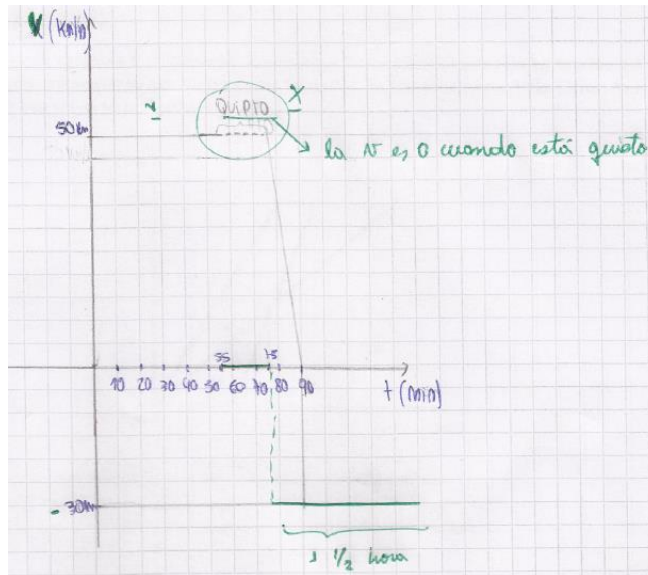 V (Km/h)
Quipto X
50 km
la v es 0 cuando está quieto
55 75
10 20 30 40 50 60 70 80 90
t (min)
- 30
1 1/2 hora